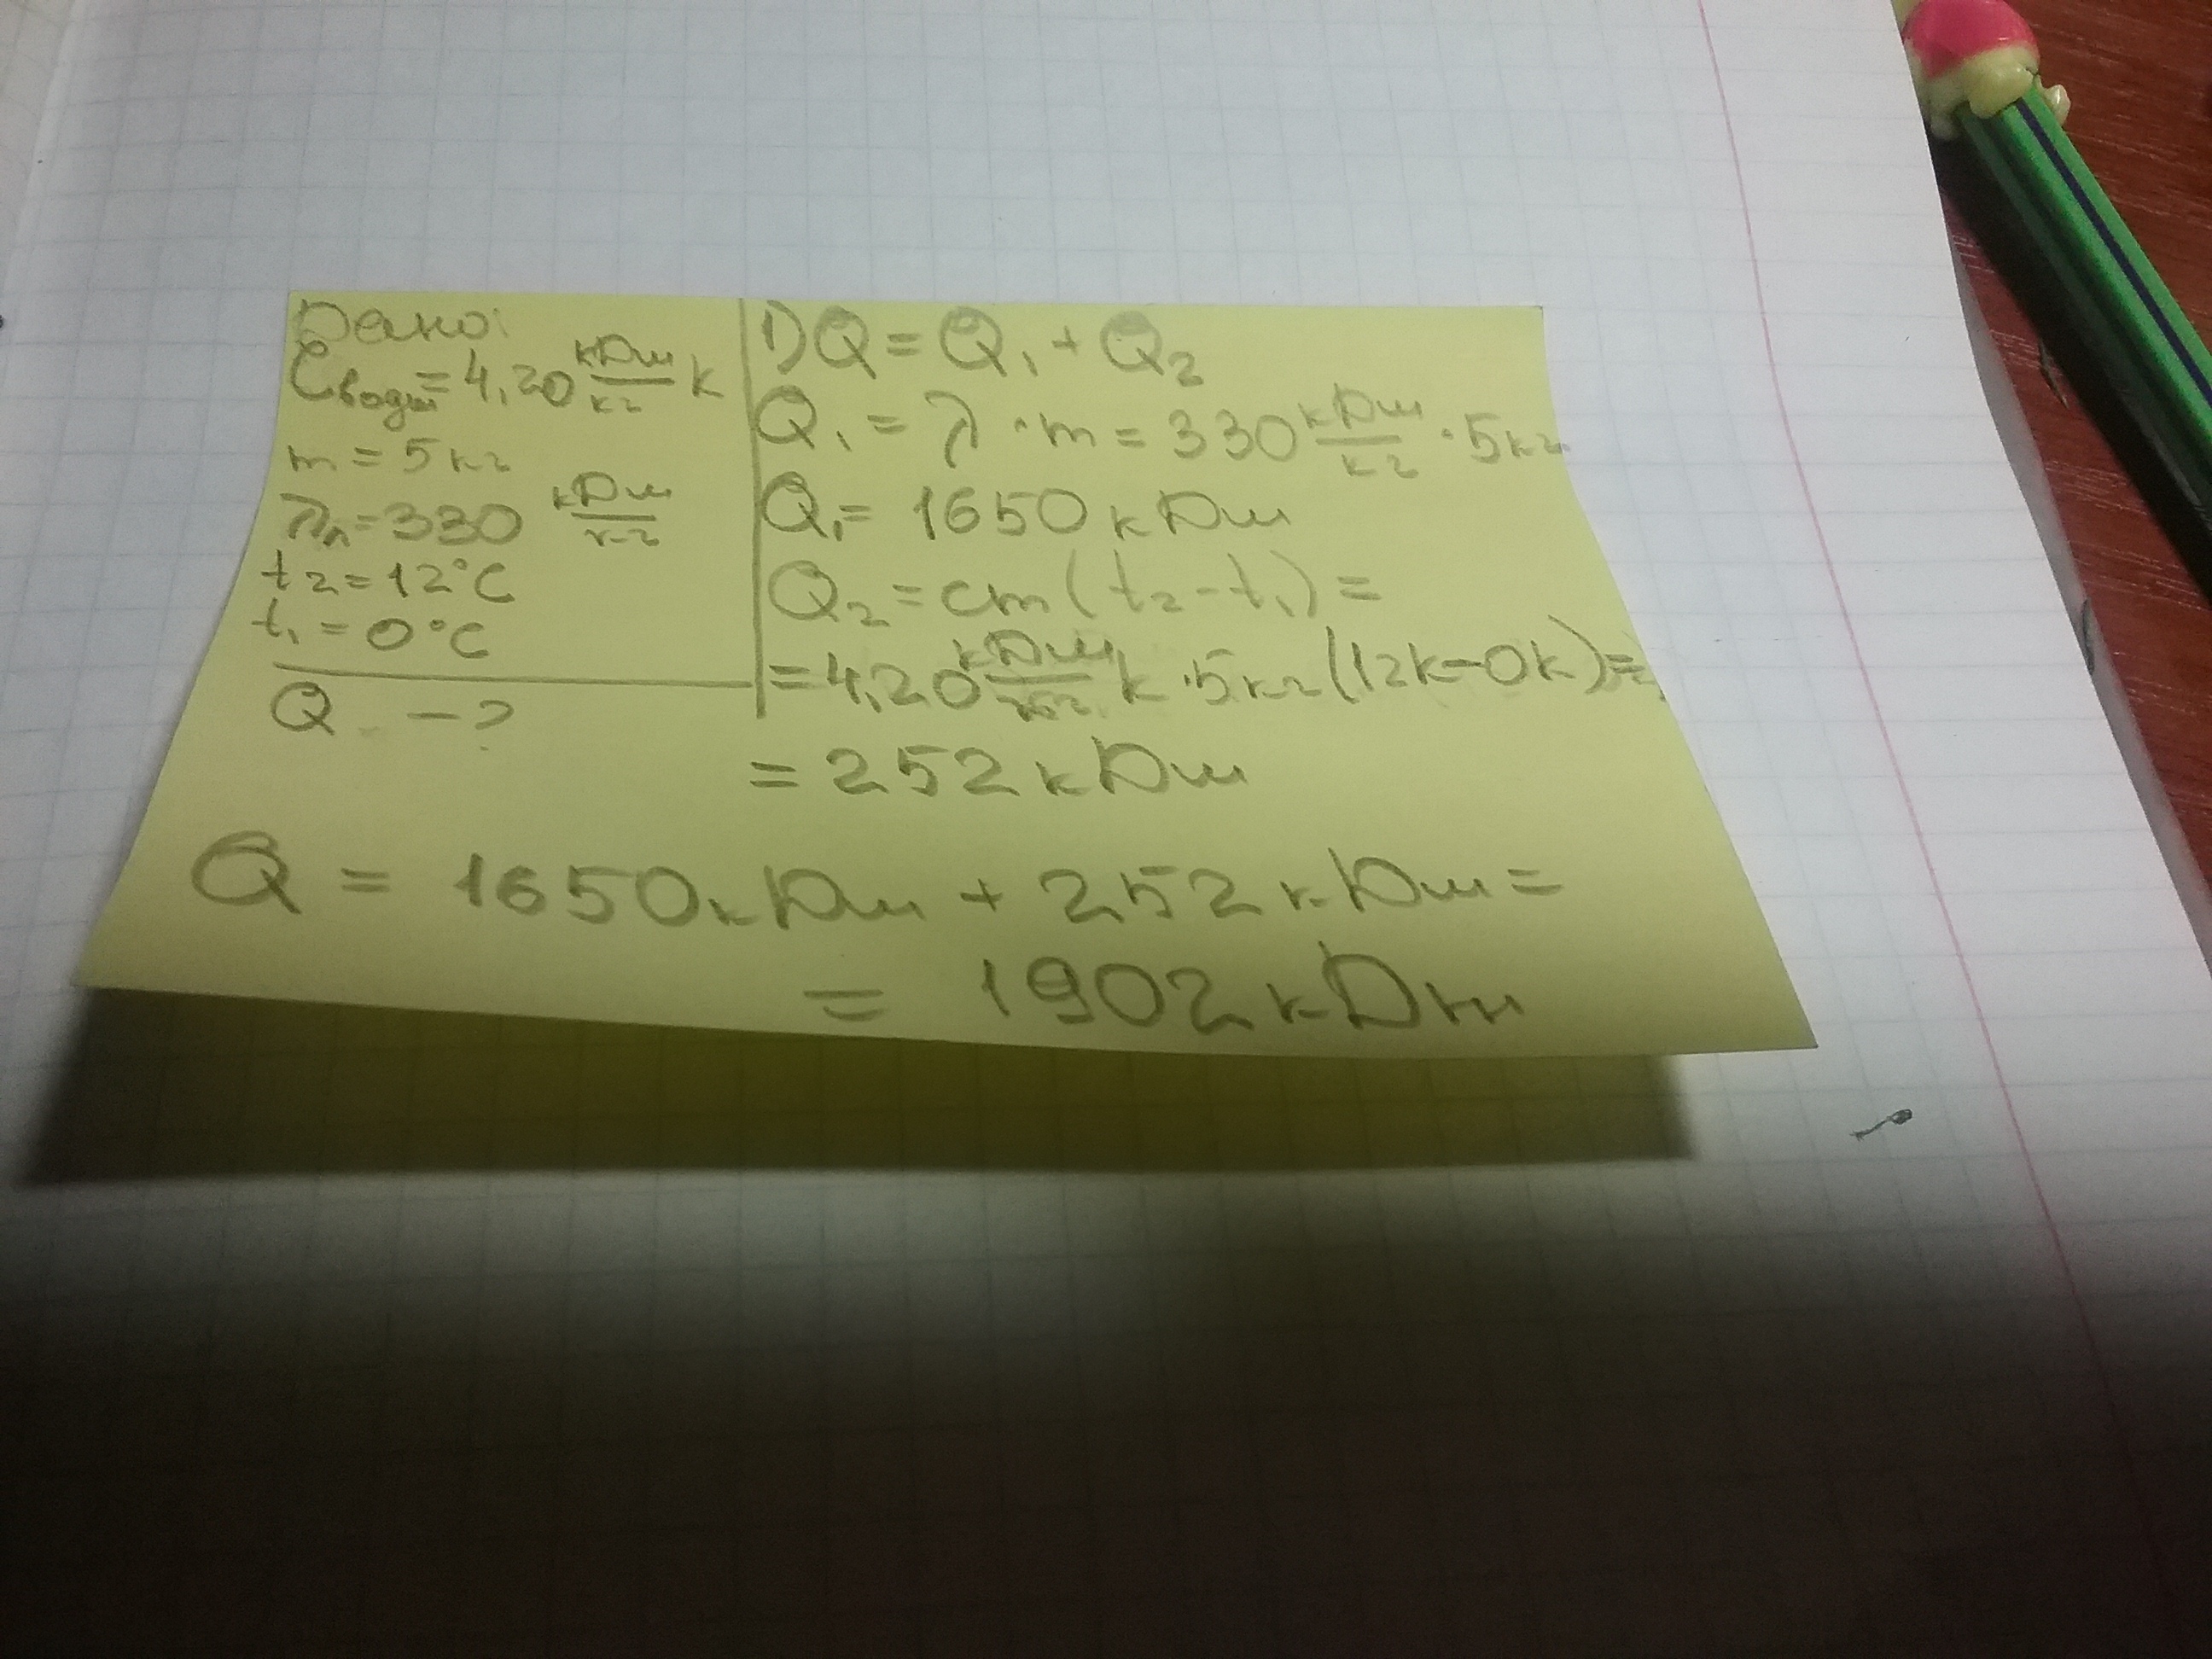 Дано:
Cводы = 4,20 кДж/кг К
m = 5 кг
λл = 330 кДж/кг
t2 = 12°C
t1 = 0°C
Q - ?
1) Q = Q1 + Q2
Q1 = λ · m = 330 кДж/кг · 5 кг
Q1 = 1650 кДж
Q2 = cm(t2 - t1) =
= 4,20 кДж/кг К · 5 кг (12К - 0К) =
= 252 кДж
Q = 1650 кДж + 252 кДж =
= 1902 кДж